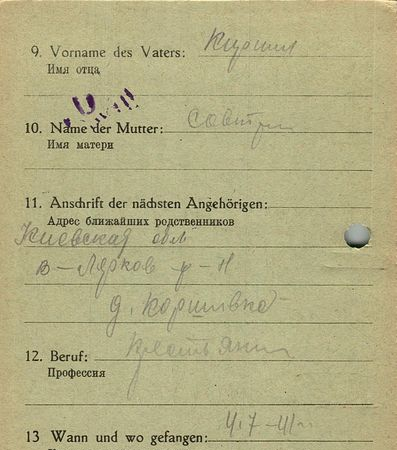 9. Vorname des Vaters:
Имя отца
10. Name der Mutter:
Имя матери
11. Anschrift der nächsten Angehörigen:
Адрес ближайших родственников
Киевская обл
р-н
д.
12. Beruf: Крестьянин
Профессия
13 Wann und wo gefangen: